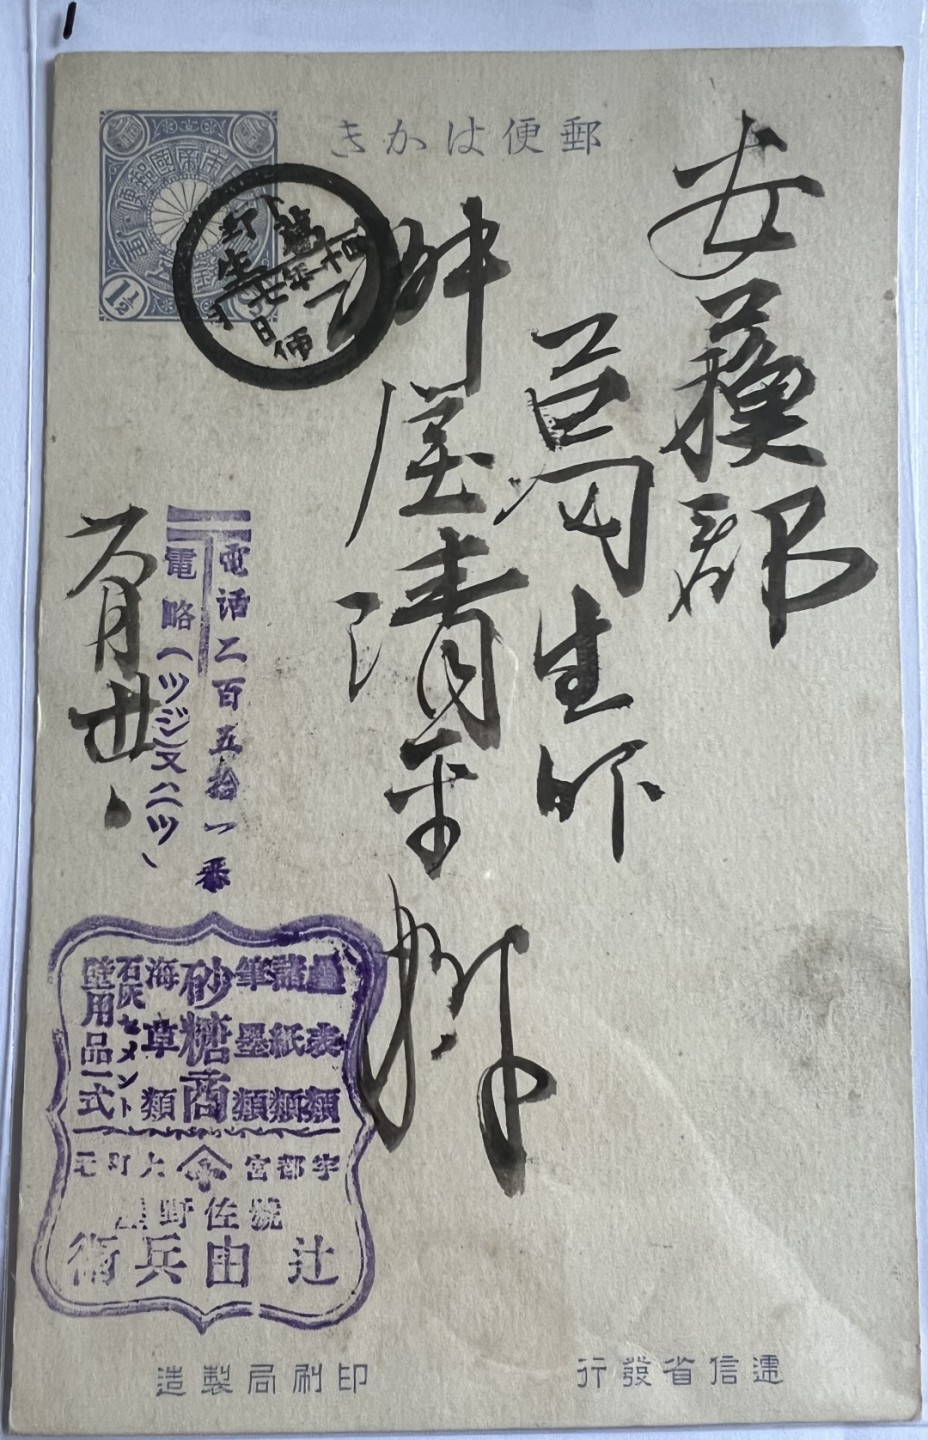 郵便はかき
大日本帝國郵便
1½
安蘓郡
葛生町
桝屋清平様
六月廿、
電話二百五拾一番
電略(ツジ)又ハ(ツ)
疊表類
諸紙類
筆墨類
砂糖商
海草類
石灰セメント
壁用品一式
宇都宮大町
號佐野屋
辻由兵衛
遞信省發行
印刷局製造